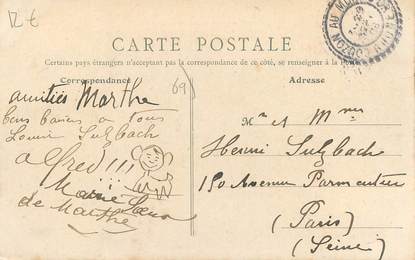 12 €
CARTE POSTALE
Certains pays étrangers n'acceptant pas la correspondance de ce côté, se renseigner à la Poste
Correspondance
69
Adresse
amitiés Marthe
bons baisers à tous
Louise Sulzbach
Alfred!!!
Marie Sœur
de Marthe
Mr et Mme
Henri Sulzbach
150 Avenue Parmentier
(Paris)
(Seine)